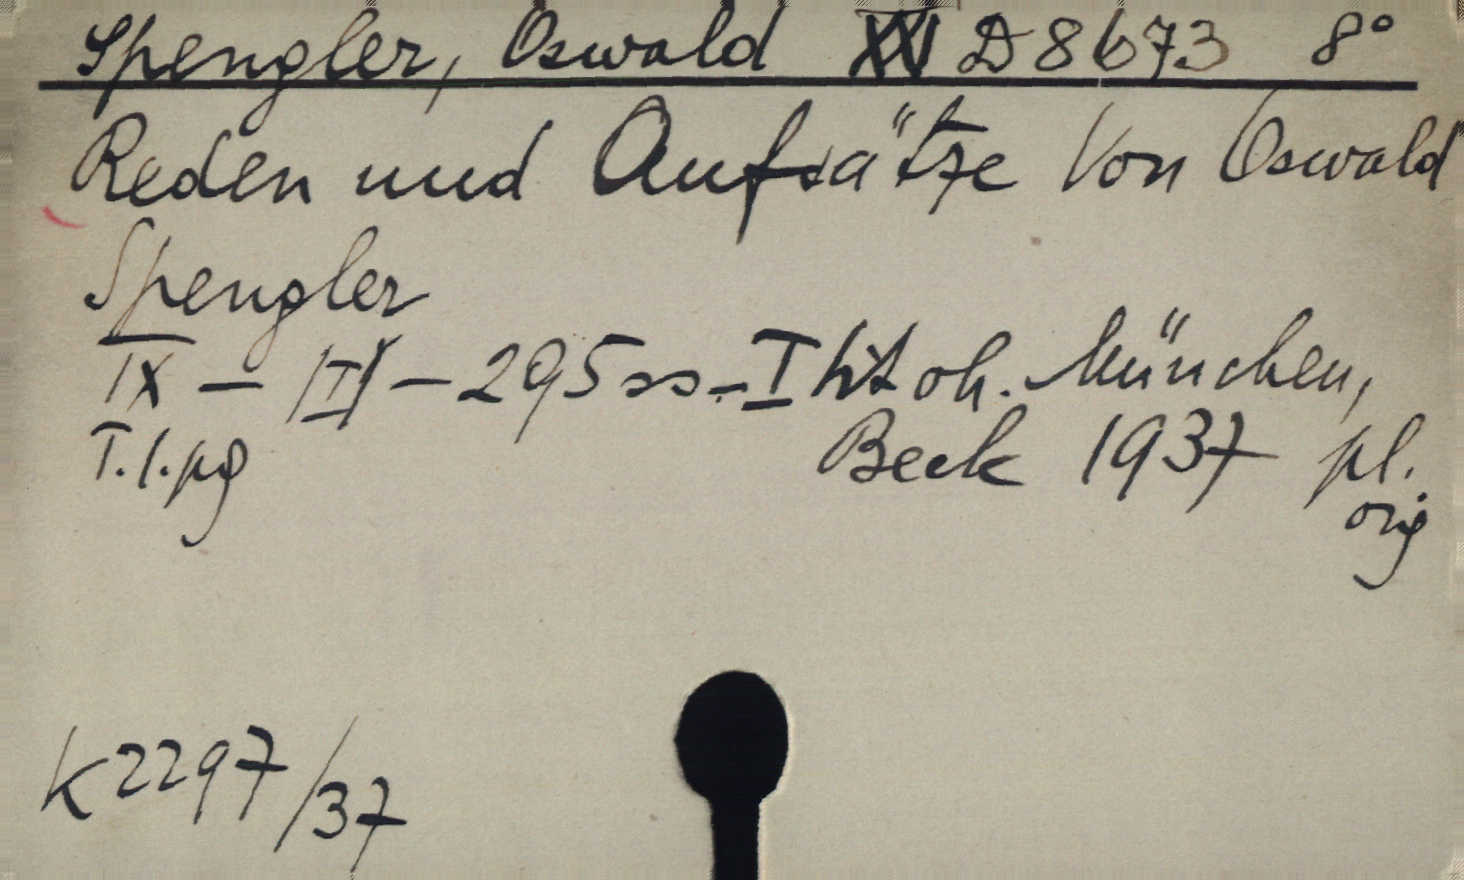 Spengler, Oswald XXI D 8673 8°
Reden und Aufsätze Von Oswald
Spengler
IX — — 295 ss. - I oh. München,
T.l.pg Beck 1937 pl.
orig
K 2297/37